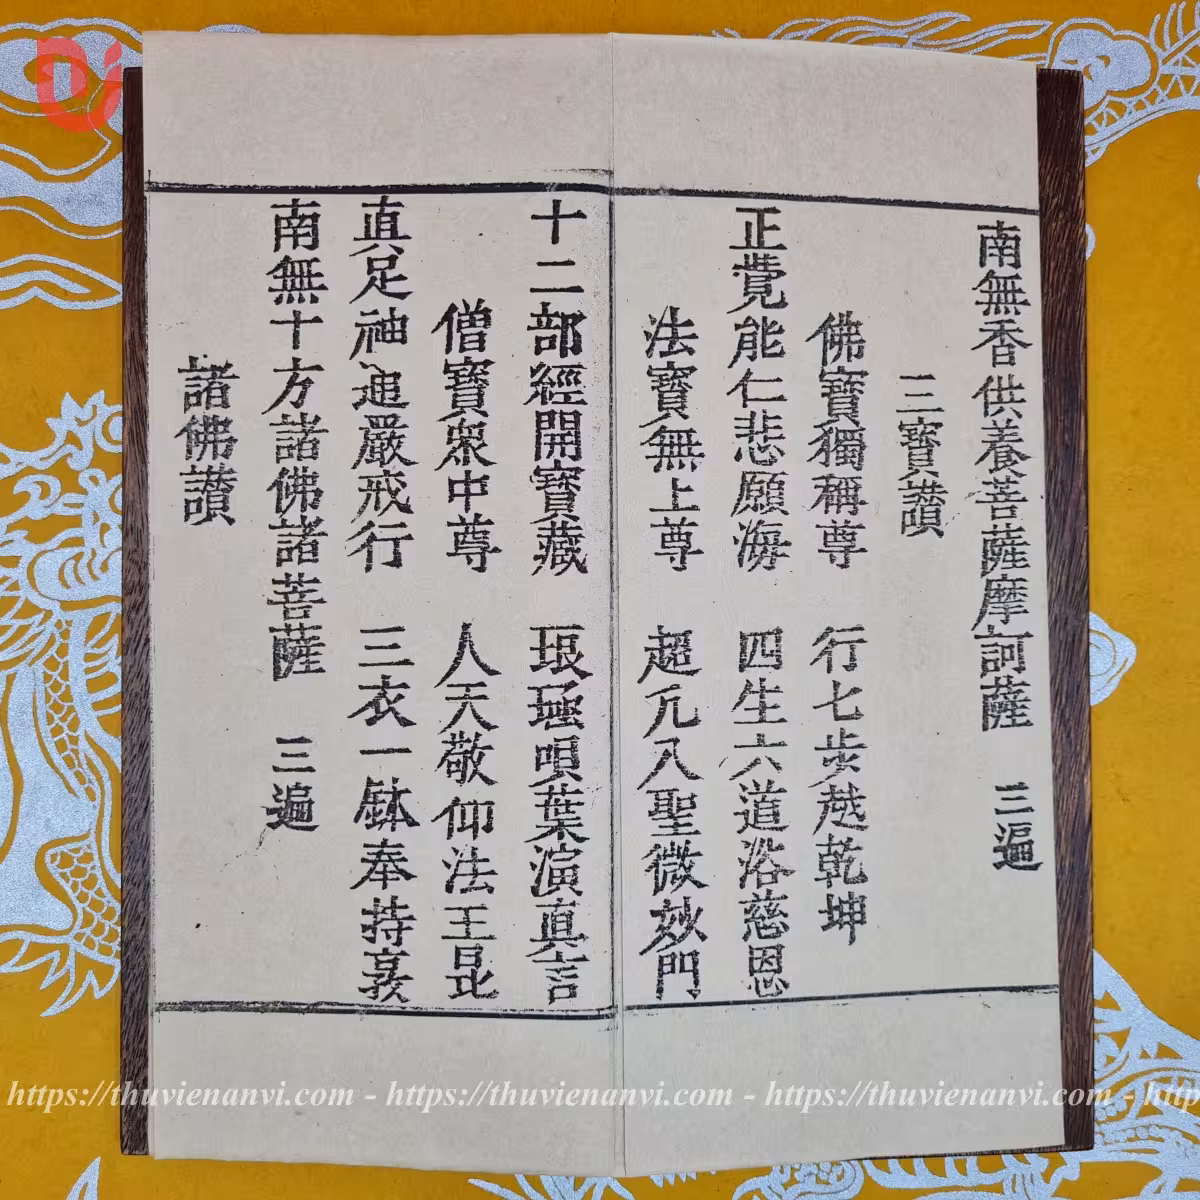 南無香供養菩薩摩訶薩 三遍
三寶讃
佛寶獨稱尊 行七步越乾坤
正覺能仁悲願海 四生六道浴慈恩
法寶無上尊 超凡入聖微妙門
十二部經開寶藏 琅唄葉演真言
僧寶衆中尊 人天敬仰法王昆
真足神通嚴戒行 三衣一鉢奉持敦
南無十方諸佛諸菩薩 三遍
諸佛讃
https://thuvienanvi.com - https://thuvienanvi.com - https://thuvienanvi.com - http